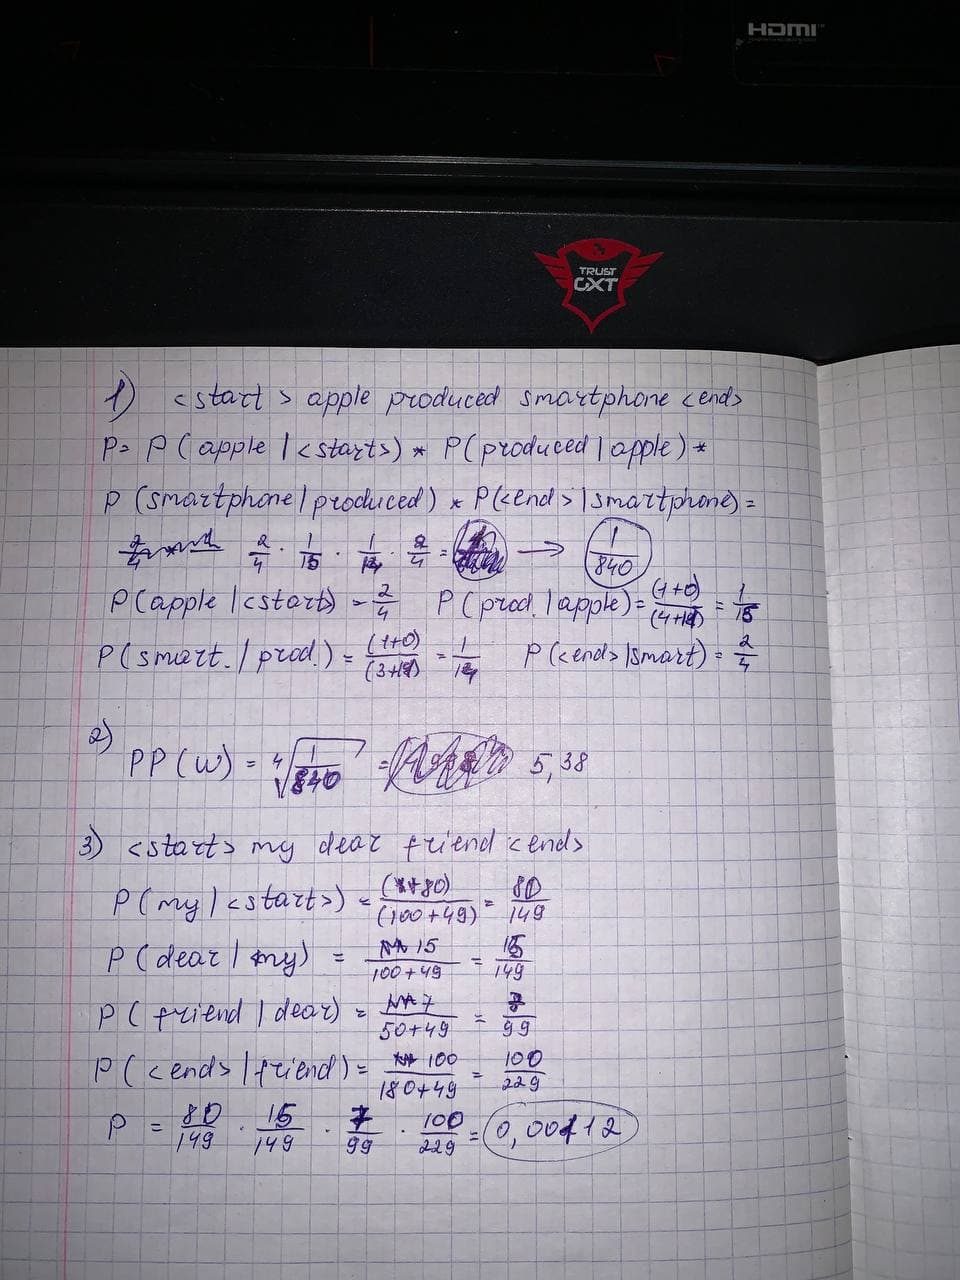 HDMI
TRUST
GXT
1) <start> apple produced smartphone <end>
P= P(apple | <start>) * P(produced | apple) *
P(smartphone | produced) * P(<end> | smartphone) =
2/4 · 1/15 · 1/14 · 2/4 = → 1/840
P(apple | <start>) = 2/4 P(prod. | apple) = (1+0)/(4+11) = 1/15
P(smart. | prod.) = (1+0)/(3+11) = 1/14 P(<end> | smart) = 2/4
2) PP(W) = ⁴√(1/840) = 5,38
3) <start> my dear friend <end>
P(my | <start>) = (80)/(100+49) = 80/149
P(dear | my) = 15/(100+49) = 15/149
P(friend | dear) = 7/(50+49) = 7/99
P(<end> | friend) = 100/(180+49) = 100/229
P = 80/149 · 15/149 · 7/99 · 100/229 = 0,00112